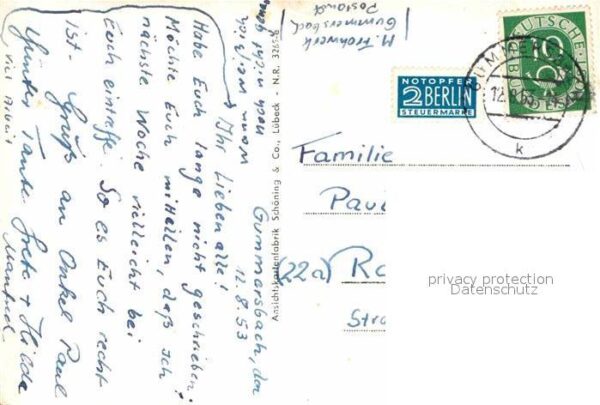 M. Frohwerk
Gummersbach
Postamt
NOTOPFER
2 BERLIN
STEUERMARKE
DEUTSCHE
10
GUMMERSBACH
12.8.53
k
Gummersbach, den
12.8.53
Ihr Lieben alle!
Habe Euch lange nicht geschrieben!
Möchte Euch mitteilen, daß ich
nächste Woche vielleicht bei
Euch eintreffe. So es Euch recht
ist. Gruß an Onkel Paul
Günter Tante Greta + Hilde
Manfred
viel Arbeit
noch nicht genau
wann
Ansichtskartenfabrik Schöning & Co., Lübeck - N.R. 3265-6
Familie
Paul
(22a) Ra
Stra
privacy protection
Datenschutz